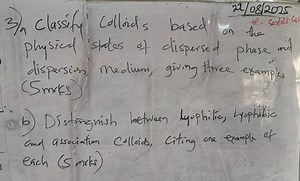 22/08/2025
3)a Classify Colloids based on the
physical states of dispersed phase and
dispersion medium, giving three examples
(5mrks)
b) Distinguish between lyophilic, lyophobic
and association Colloids, citing one example of
each (5 mrks)